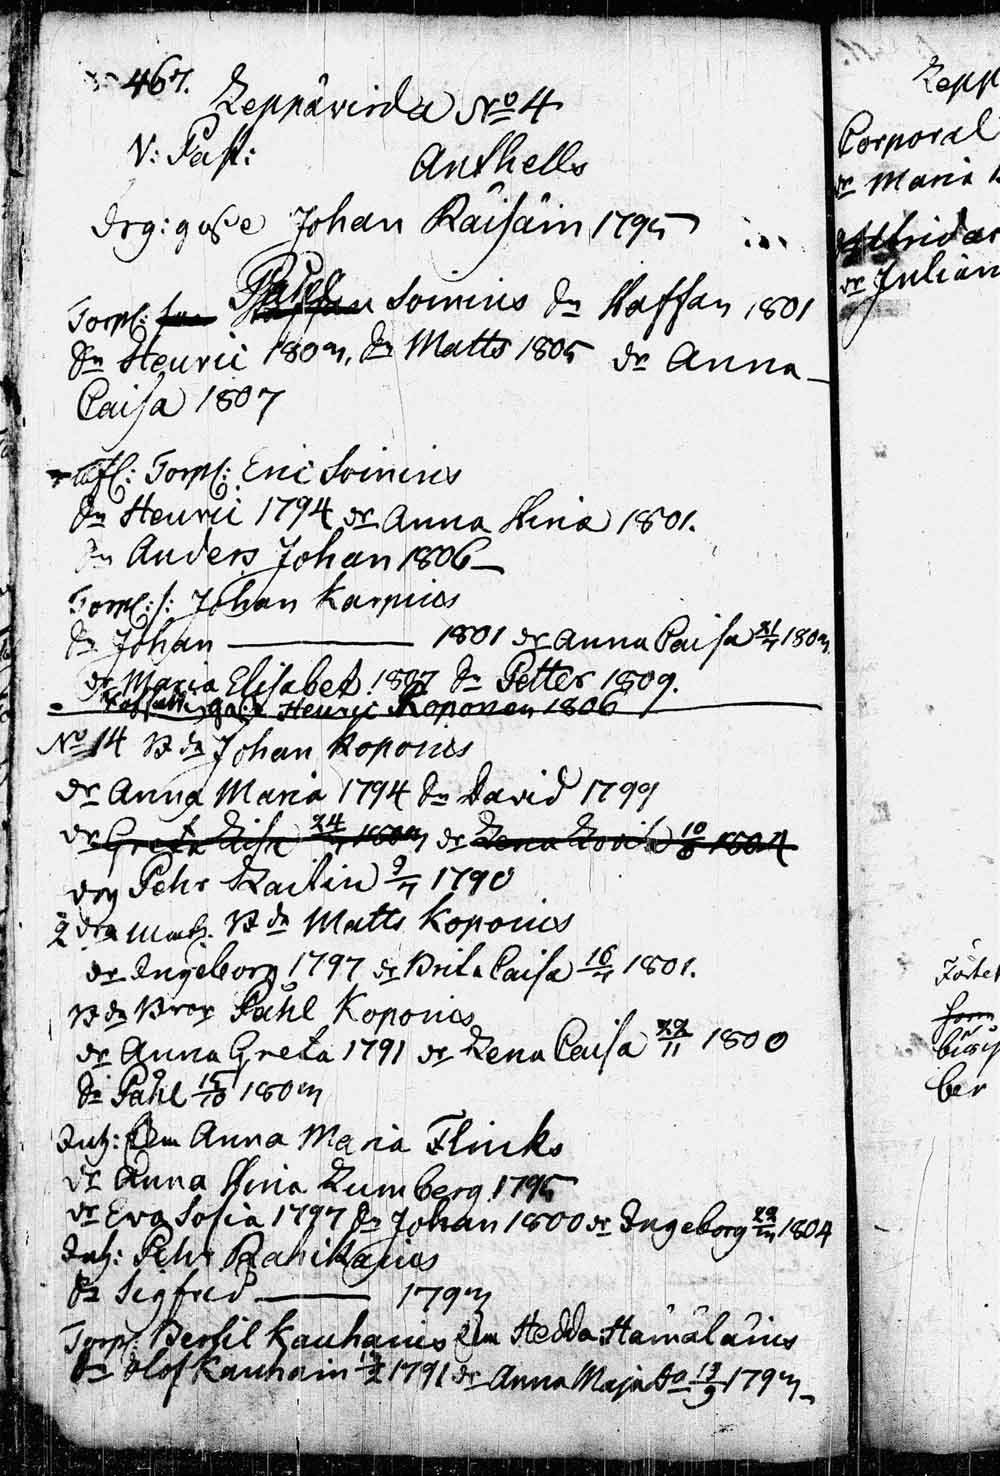 467.
Leppävirda No 4
V: Past:
Anthells
drg: gosse Johan Räisäin 1795
Torpf: Påhl Soinins Sn Staffan 1801
Sn Henric 1803, Sn Matts 1805 dr Anna
Caisa 1807
Torpf: Eric Soinins
Sn Henric 1794 dr Anna Stina 1801.
Sn Anders Johan 1806
Torpf: s: Johan Karpins
Sn Johan 1801 dr Anna Caisa 1803
dr Maria Elisabet 1807 Sn Petter 1809.
Henric Koponen 1806
No 14 Bdn Johan Kopoins
dr Anna Maria 1794 Sn David 1799
dr Greta Lisa 24 1803 dr Lena Lovisa 10/8 1804
drg Pehr Laitin 9 1790
Bdn Matts Kopoins
dr Ingeborg 1797 dr Brita Caisa 16 1801.
Bdn Bror Påhl Kopoins
dr Anna Greta 1791 dr Lena Caisa 29/11 1800
Sn Påhl 15/10 1803
Inh: Anna Maria Flinks
dr Anna Stina Lumberg 1795
dr Eva Sofia 1797 Sn Johan 1800 dr Ingeborg 1804
Inh: Pehr Rahikains
Sn Sigfred 1793
Torp: Bertil Kauhains Hedda Hämäläins
Sn Olof Kauhain 1791 dr Anna Maja do 13/9 1793
Lepp
Corporal
dr Maria
dr Julian
ber